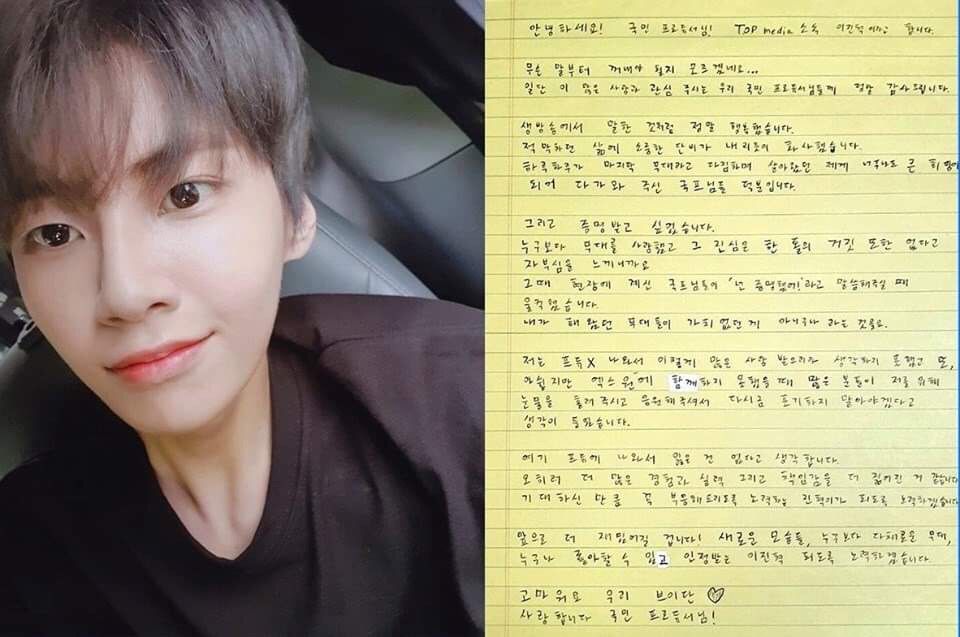 안녕하세요! 국민 프로듀서님! TOP media 소속 이진혁이라고 합니다.
무슨 말부터 꺼내야 될지 모르겠네요...
일단 이 많은 사랑과 관심 주시는 우리 국민 프로듀서님들께 정말 감사드립니다.
생방송에서 말한 것처럼 정말 행복했습니다.
적막하던 삶에 소중한 단비가 내리듯이 화사했습니다.
하루하루가 마지막 무대라고 다짐하며 살아왔던 제게 너무나도 큰 희망이
되어 다가와 주신 국프님들 덕분입니다.
그리고 증명받고 싶었습니다.
누구보다 무대를 사랑했고 그 진심은 한 톨의 거짓 또한 없다고
자부심을 느끼니까요
그때 현장에 계신 국프님들이 '넌 증명했어!'라고 말씀해주실 때
울컥했습니다.
내가 해왔던 무대들이 가치 없던게 아니구나 라는 것을요.
저는 프듀X 나와서 이렇게 많은 사랑 받으리라 생각하지 못했고 또,
아쉽지만 엑스원에 함께하지 못했을 때 많은 분들이 저를 위해
눈물을 흘려주시고 응원해주셔서 다시금 포기하지 말아야겠다고
생각이 들었습니다.
여기 프듀에 나와서 잃은 건 없다고 생각합니다.
오히려 더 많은 경험과 실력 그리고 책임감을 더 짊어진 것 같습니다
기대하신 만큼 꼭 부응해드리도록 노력하는 진혁이가 되도록 노력하겠습니다
앞으로 더 재밌어질 겁니다! 새로운 모습들, 누구보다 다채로운 무대,
누구나 좋아할 수 있고 인정받는 이진혁 되도록 노력하겠습니다.
고마워요 우리 브이단 ♡
사랑합니다 국민 프로듀서님!